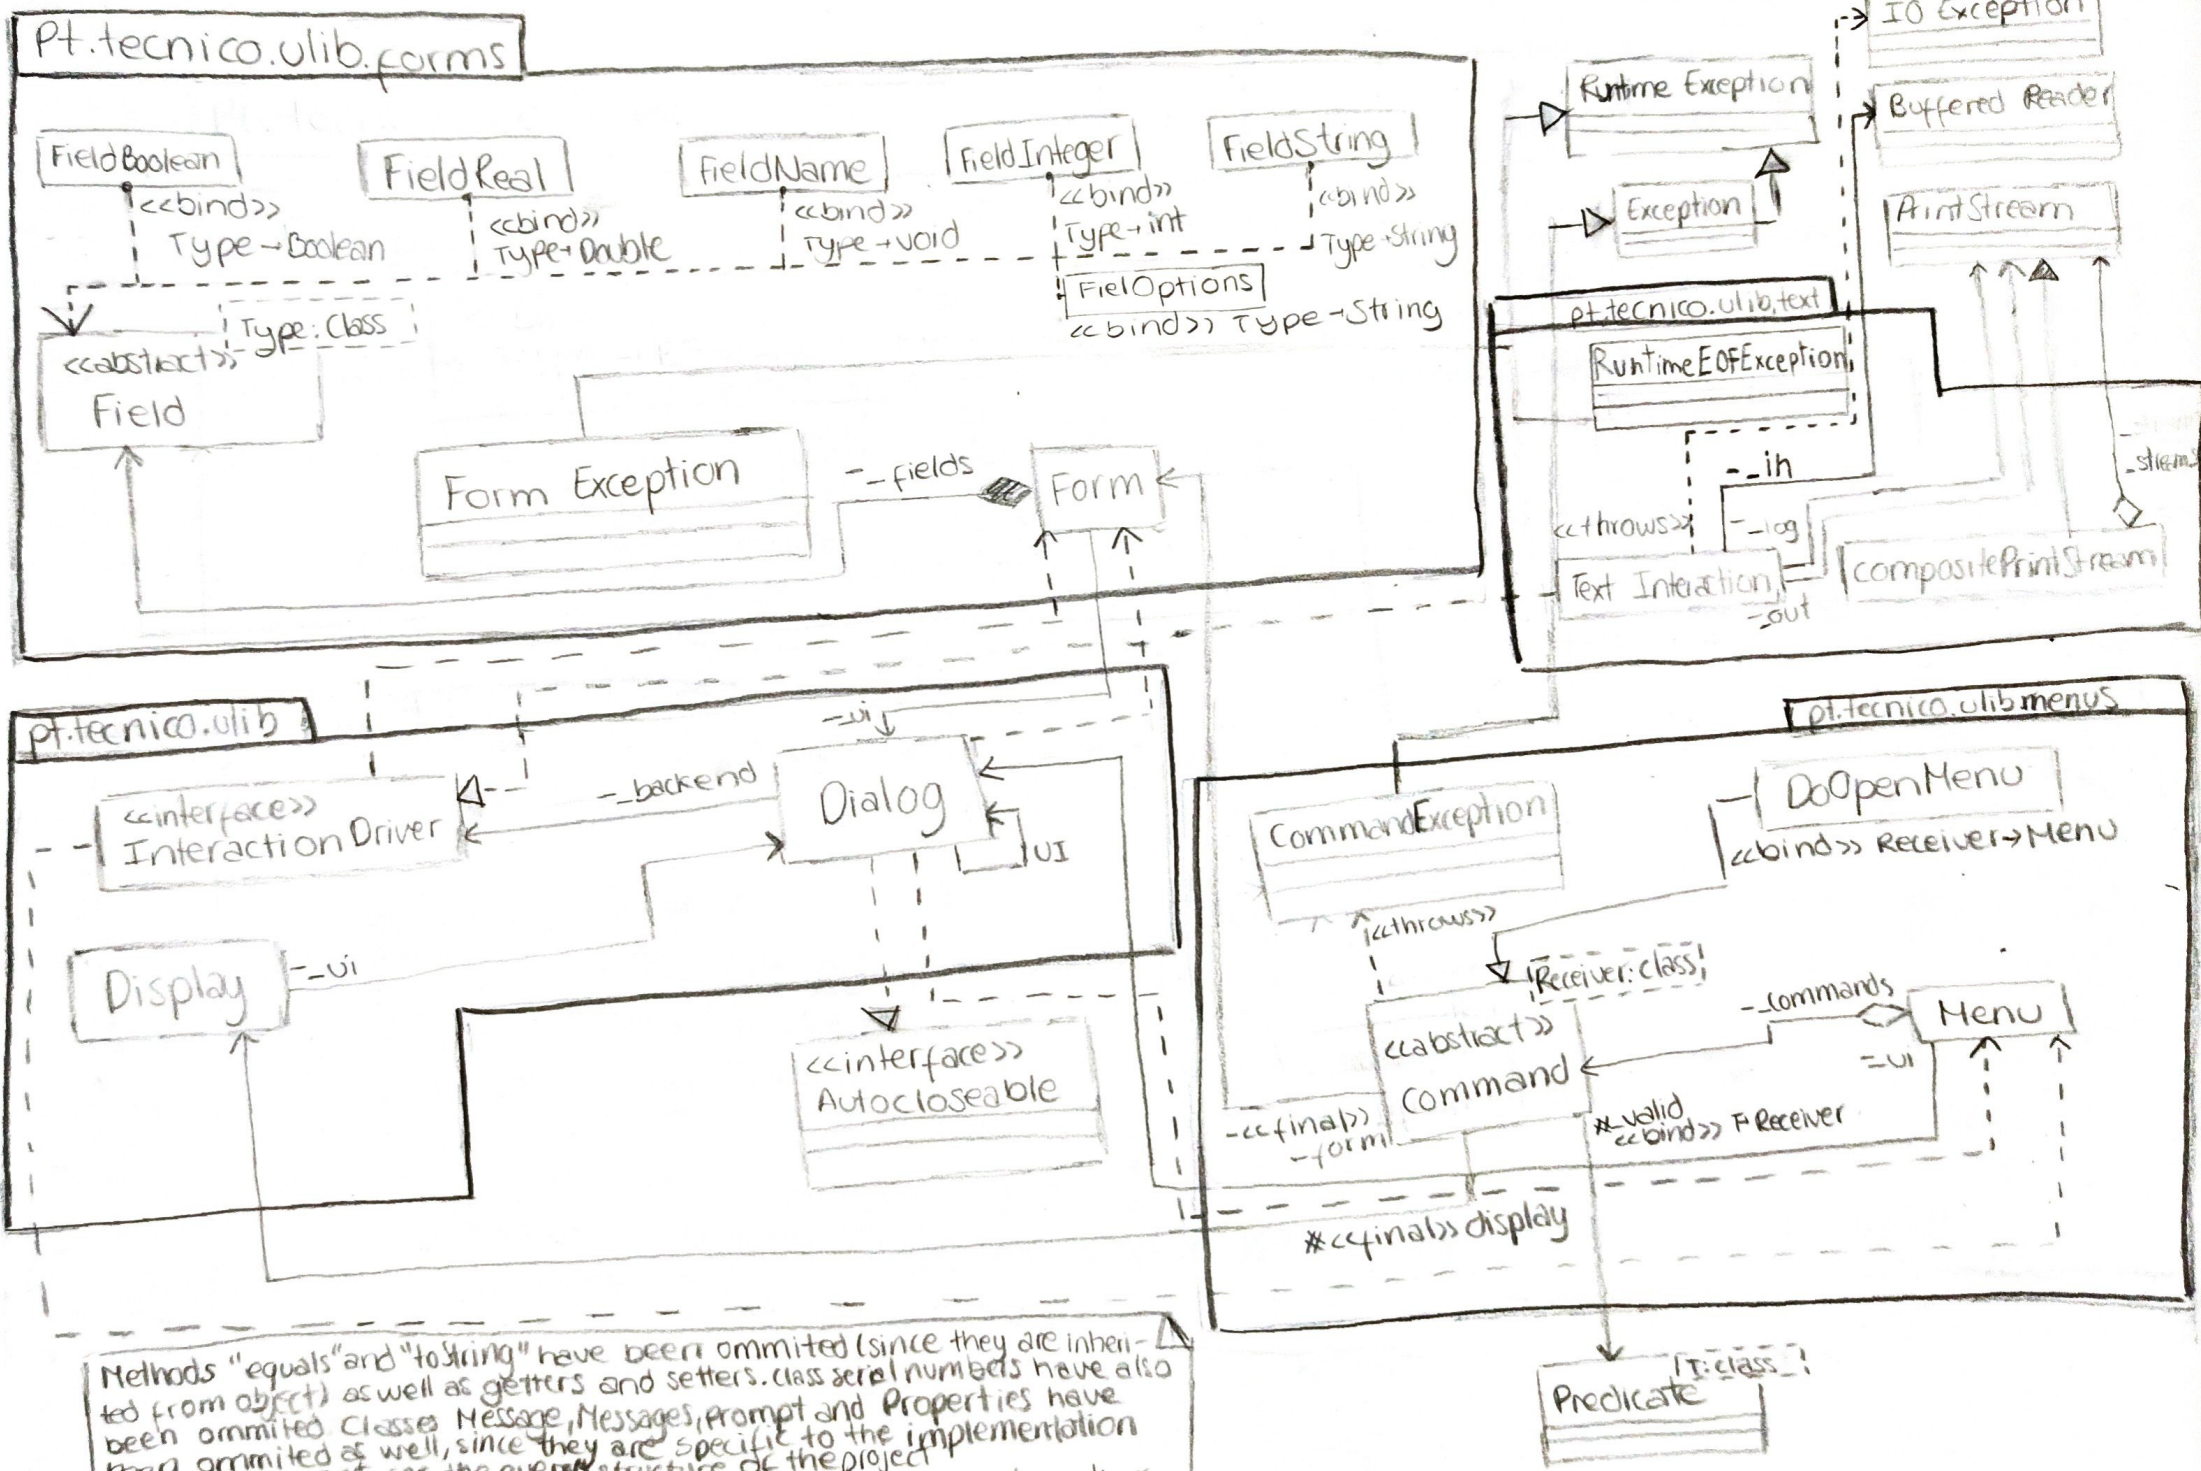 Pt.tecnico.ulib.forms
FieldBoolean
<<bind>>
Type→Boolean
FieldReal
<<bind>>
Type→Double
FieldName
<<bind>>
Type→void
FieldInteger
<<bind>>
Type→int
FieldString
<<bind>>
Type→String
FielOptions
<<bind>> Type→String
Type:Class
<<abstract>>
Field
Form Exception
-_fields
Form
IO Exception
Runtime Exception
Buffered Reader
Exception
PrintStream
pt.tecnico.ulib.text
RuntimeEOFException
-_in
_streams
<<throws>>
-_log
Text Interaction
compositePrintStream
-_out
pt.tecnico.ulib
-_ui
<<interface>>
Interaction Driver
-_backend
Dialog
UI
Display
-_ui
<<interface>>
Autocloseable
pt.tecnico.ulib menus
CommandException
DoOpenMenu
<<bind>> Receiver→Menu
<<throws>>
Receiver:class
<<abstract>>
Command
-_commands
Menu
-_ui
-<<final>>
-form
#_valid
<<bind>> T→Receiver
#<<final>> display
T:class
Predicate
Methods "equals" and "toString" have been ommited (since they are inheri-
ted from object) as well as getters and setters. class serial numbers have also
been ommited. Classes Message, Messages, Prompt and Properties have
been ommited as well, since they are specific to the implementation
the overall structure of the project